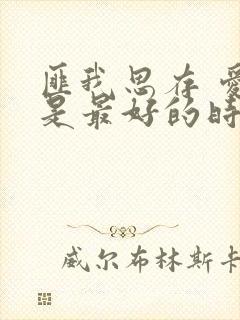 匪我思存 爱
是最好的时
威尔布林斯卡